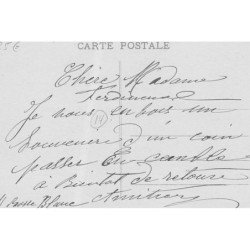 25€
CARTE POSTALE
Chère Madame
Ferdinand
Je vous envois un
Souvenere d'un coin
passer En semble
à Bientot de retour
Blanc Amitier